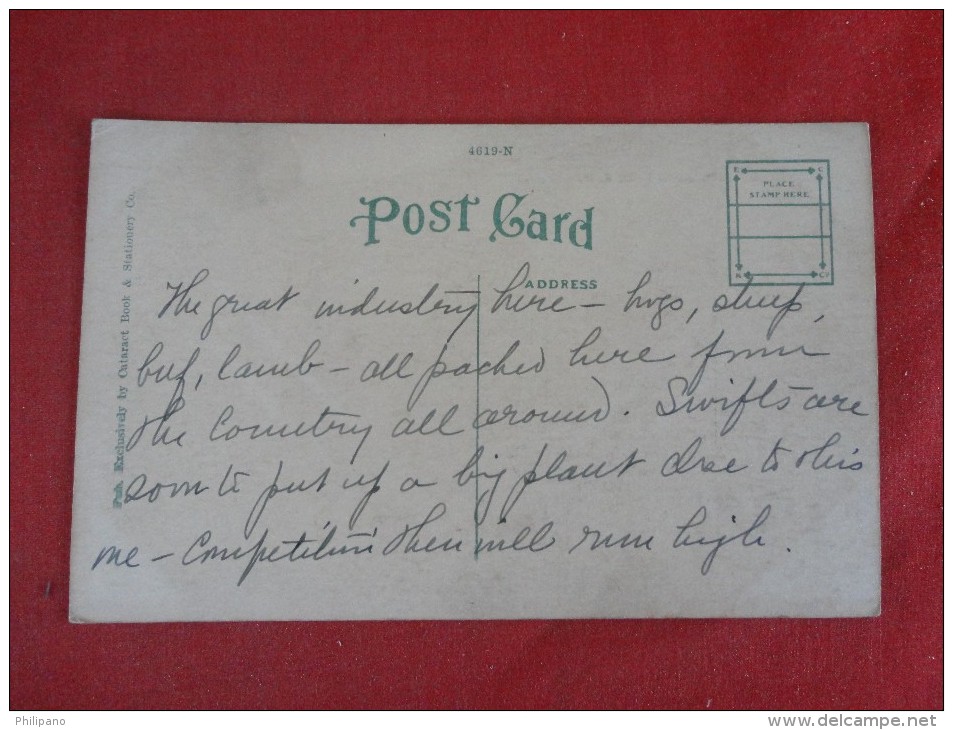 4619-N
E. C.
PLACE
STAMP HERE
K. Co
POST CARD
ADDRESS
Pub. Exclusively by Cataract Book & Stationery Co.
The great industry here – hogs, sheep,
beef, lamb – all packed here from
the country all around. Swifts are
soon to put up a big plant close to this
one – Competition then will run high.
Philipano
www.delcampe.net